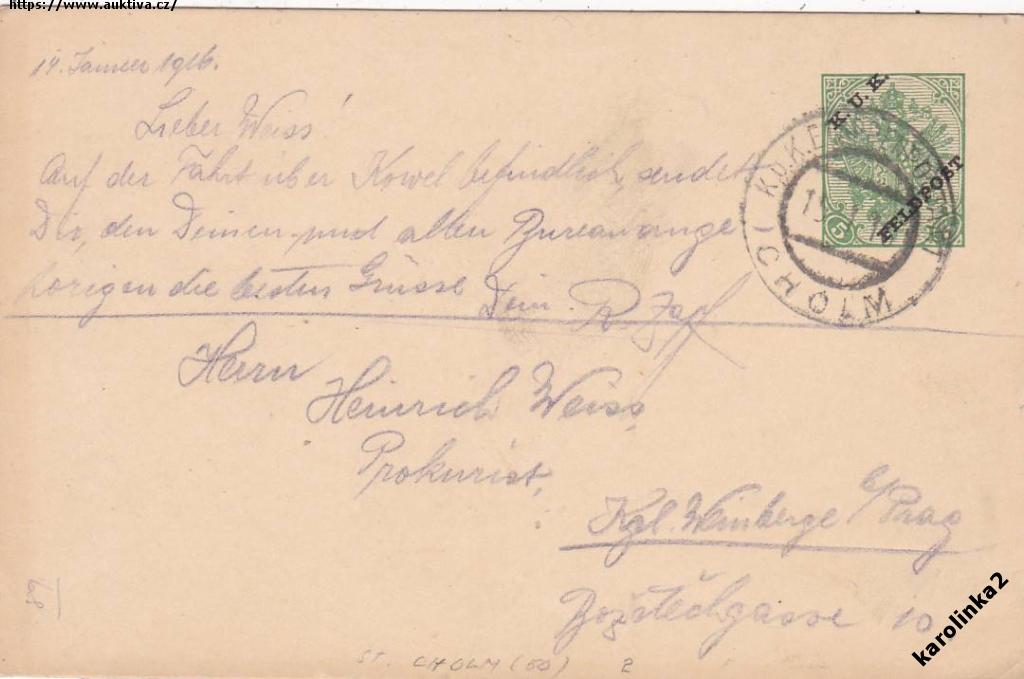 https://www.auktiva.cz/
14. Jänner 1916.
Lieber Weiss!
Auf der Fahrt über Kowel befindlich, sendet
Dir, den Deinen und allen Bureauange
hörigen die besten Grüsse Dein R. Zapf
K.U.K.
FELDPOST
5
CHOLM
Herrn
Heinrich Weiss,
Prokurist,
Kgl. Weinberge b/Prag
10
68
ST. CHOLM (50) 2
karolinka2